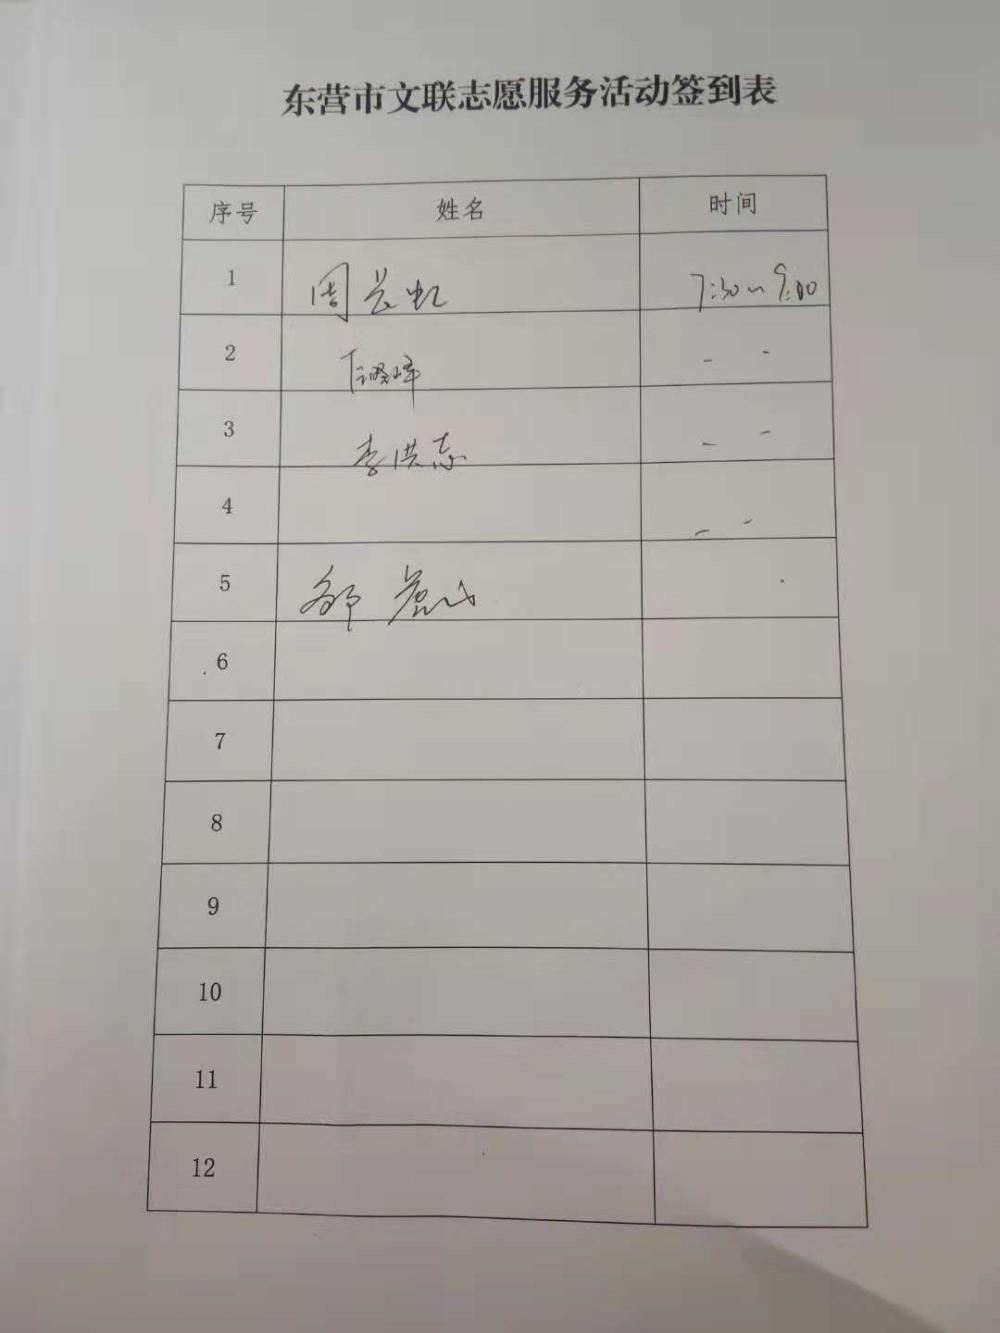 东营市文联志愿服务活动签到表
序号 姓名 时间
1 周长虹 7:30~9:00
2
3 李洪志
4
5
6
7
8
9
10
11
12